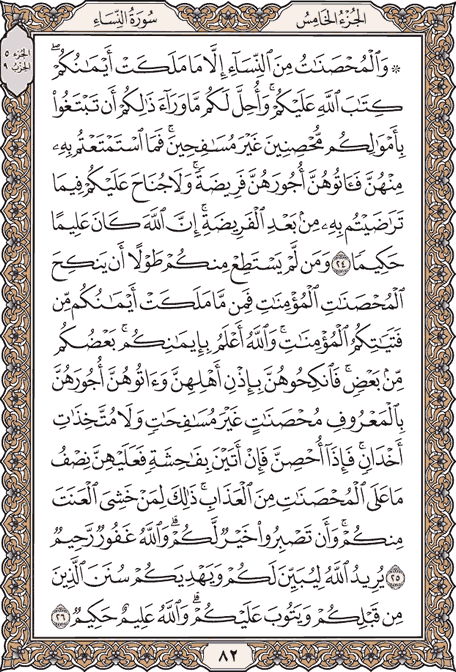 الجزء الخامس
سورة النساء
الجزء ٥
الحزب ٩
۞ وَٱلْمُحْصَنَٰتُ مِنَ ٱلنِّسَآءِ إِلَّا مَا مَلَكَتْ أَيْمَٰنُكُمْ ۖ
كِتَٰبَ ٱللَّهِ عَلَيْكُمْ ۚ وَأُحِلَّ لَكُم مَّا وَرَآءَ ذَٰلِكُمْ أَن تَبْتَغُوا۟
بِأَمْوَٰلِكُم مُّحْصِنِينَ غَيْرَ مُسَٰفِحِينَ ۚ فَمَا ٱسْتَمْتَعْتُم بِهِۦ
مِنْهُنَّ فَـَٔاتُوهُنَّ أُجُورَهُنَّ فَرِيضَةً ۚ وَلَا جُنَاحَ عَلَيْكُمْ فِيمَا
تَرَٰضَيْتُم بِهِۦ مِنۢ بَعْدِ ٱلْفَرِيضَةِ ۚ إِنَّ ٱللَّهَ كَانَ عَلِيمًا
حَكِيمًا ٢٤ وَمَن لَّمْ يَسْتَطِعْ مِنكُمْ طَوْلًا أَن يَنكِحَ
ٱلْمُحْصَنَٰتِ ٱلْمُؤْمِنَٰتِ فَمِن مَّا مَلَكَتْ أَيْمَٰنُكُم مِّن
فَتَيَٰتِكُمُ ٱلْمُؤْمِنَٰتِ ۚ وَٱللَّهُ أَعْلَمُ بِإِيمَٰنِكُم ۚ بَعْضُكُم
مِّنۢ بَعْضٍ ۚ فَٱنكِحُوهُنَّ بِإِذْنِ أَهْلِهِنَّ وَءَاتُوهُنَّ أُجُورَهُنَّ
بِٱلْمَعْرُوفِ مُحْصَنَٰتٍ غَيْرَ مُسَٰفِحَٰتٍ وَلَا مُتَّخِذَٰتِ
أَخْدَانٍ ۚ فَإِذَآ أُحْصِنَّ فَإِنْ أَتَيْنَ بِفَٰحِشَةٍ فَعَلَيْهِنَّ نِصْفُ
مَا عَلَى ٱلْمُحْصَنَٰتِ مِنَ ٱلْعَذَابِ ۚ ذَٰلِكَ لِمَنْ خَشِىَ ٱلْعَنَتَ
مِنكُمْ ۚ وَأَن تَصْبِرُوا۟ خَيْرٌ لَّكُمْ ۗ وَٱللَّهُ غَفُورٌ رَّحِيمٌ
٢٥ يُرِيدُ ٱللَّهُ لِيُبَيِّنَ لَكُمْ وَيَهْدِيَكُمْ سُنَنَ ٱلَّذِينَ
مِن قَبْلِكُمْ وَيَتُوبَ عَلَيْكُمْ ۗ وَٱللَّهُ عَلِيمٌ حَكِيمٌ ٢٦
٨٢